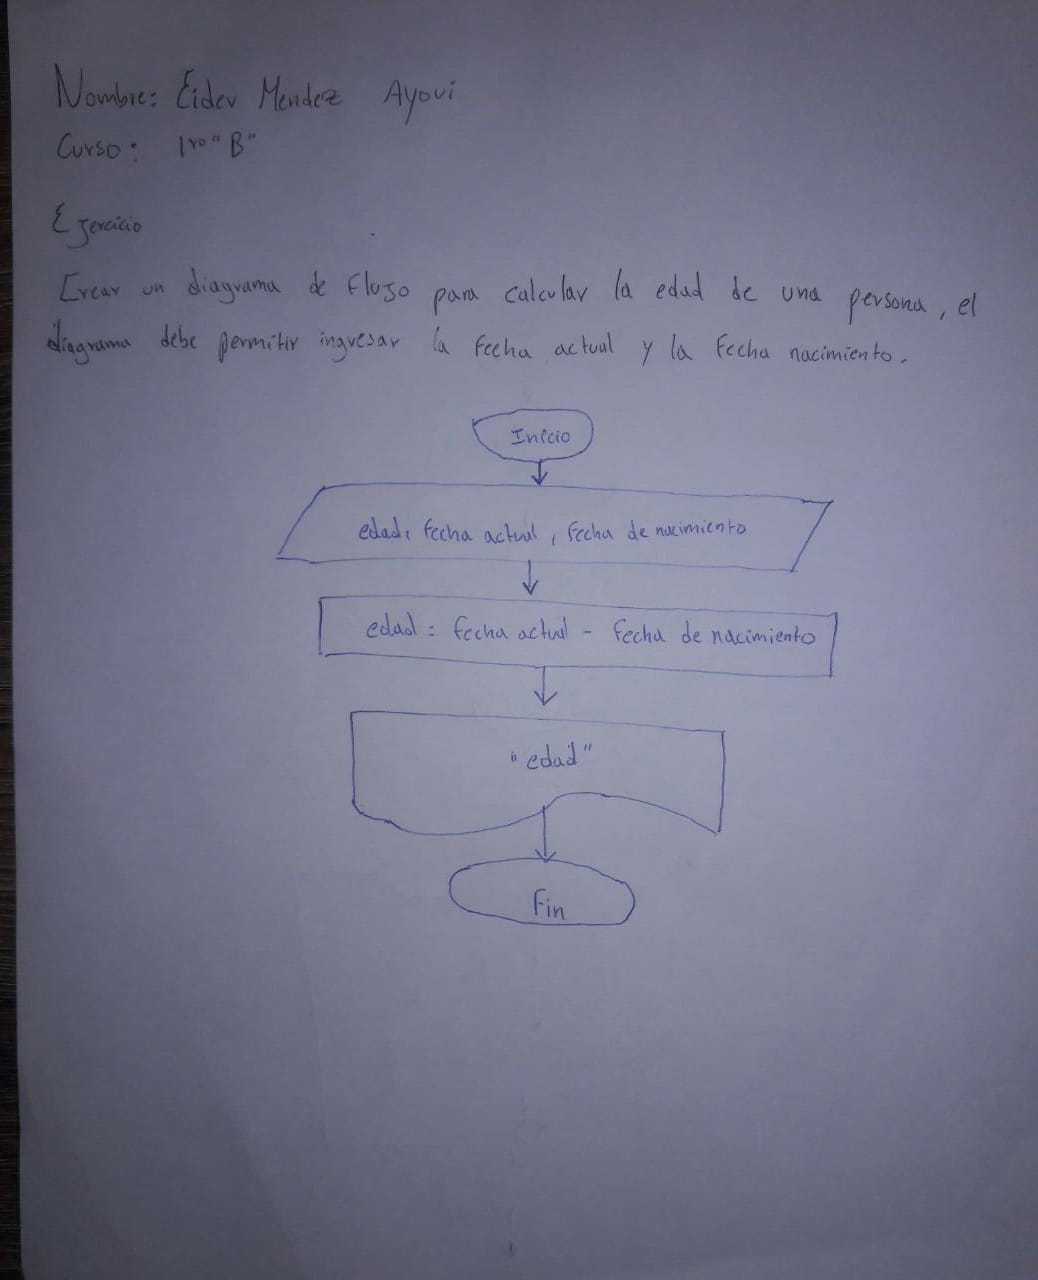 Nombre: Eider Mendez Ayovi
Curso: 1ro "B"
Ejercicio
Crear un diagrama de flujo para calcular la edad de una persona, el
diagrama debe permitir ingresar la fecha actual y la fecha nacimiento.
Inicio
edad, fecha actual, fecha de nacimiento
edad = fecha actual - fecha de nacimiento
"edad"
Fin